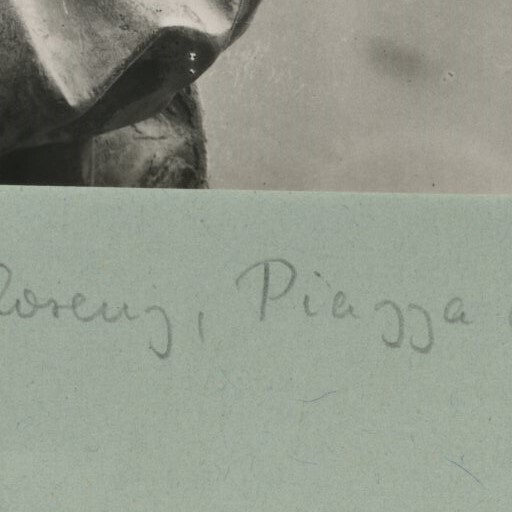 Florenz, Piazza